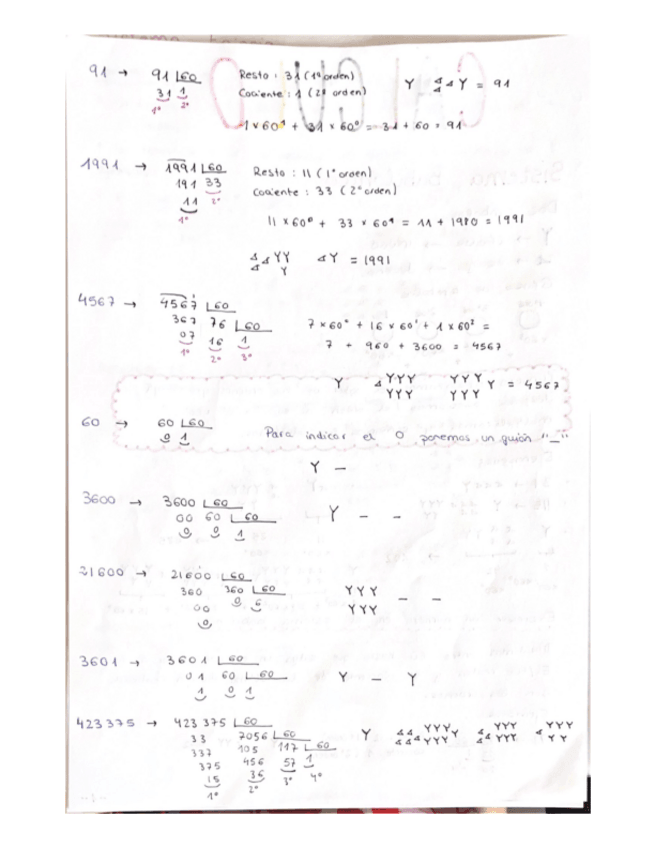 91 → 91 60 Resto : 31 (1º orden) Y ⊲⊲⊲Y = 91
31 1 Cociente : 1 (2º orden)
1º 2º
1 x 60¹ + 31 x 60⁰ = 31 + 60 = 91
1991 → 1991 60 Resto : 11 (1º orden)
191 33 Cociente : 33 (2º orden)
11 2º
1º 11 x 60⁰ + 33 x 60¹ = 11 + 1980 = 1991
⊲⊲⊲YYY ⊲Y = 1991
4567 → 4567 60
367 76 60 7 x 60⁰ + 16 x 60¹ + 1 x 60² =
07 16 1 7 + 960 + 3600 = 4567
1º 2º 3º
Y ⊲YYYYYY YYYYYYY = 4567
60 → 60 60
0 1 Para indicar el 0 ponemos un guión "_"
Y —
3600 → 3600 60
00 60 60 Y — —
0 0 1
21600 → 21600 60
360 360 60 YYYYYY — —
00 0 6
0
3601 → 3601 60
01 60 60 Y — Y
1 0 1
423375 → 423 375 60
33 7056 60 Y ⊲⊲⊲⊲⊲YYYYYYY ⊲⊲⊲YYYYYY ⊲YYYYY
337 105 117 60
375 456 57 1
15 36 3º 4º
1º 2º